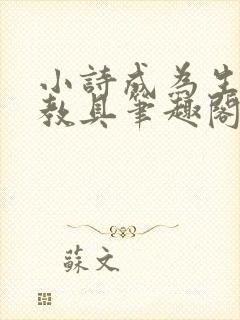 小詩成為生
教具筆趣閣
蘇文